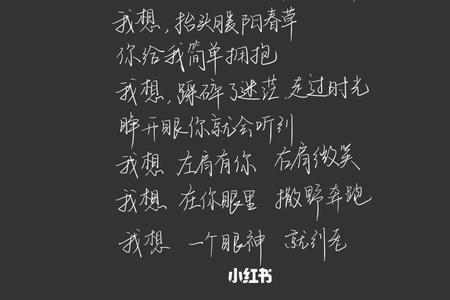 我想,抬头暖阳春草
你给我简单拥抱
我想,踩碎了迷茫,走过时光
睁开眼你就会听到
我想 左肩有你 右肩微笑
我想 在你眼里 撒野奔跑
我想 一个眼神 就到老
小红书